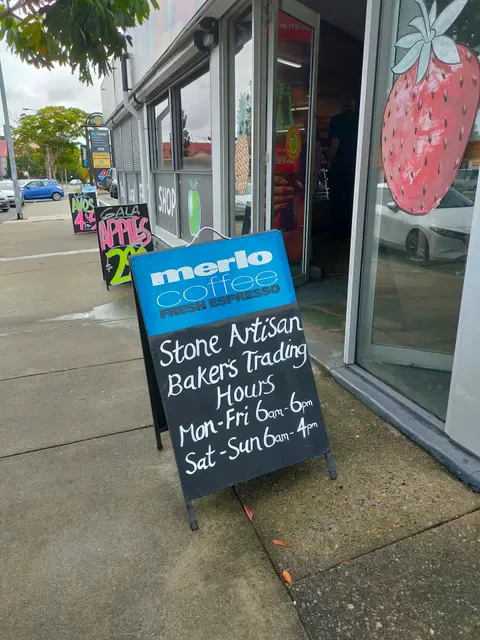 merlo
coffee
FRESH ESPRESSO
Stone Artisan
Baker's Trading
Hours
Mon-Fri 6am-6pm
Sat-Sun 6am-4pm
GALA
APPLES
AVOS
SHOP